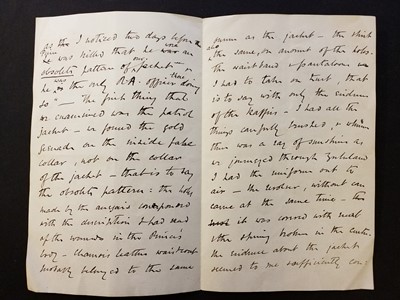 I noticed two days before
he was killed that he wore an
obsolete pattern of jacket
he was the only R.A. officer doing
so" — The first thing that
we examined was the patrol
jacket — we found the gold
grenade on the inside false
collar, not on the collar
of the jacket — that is to say
the obsolete pattern: the holes
made by the assegais corresponded
with the description I had read
of the wounds in the Prince's
body — chamois leather waistcoat
probably belonged to the same
person as the jacket — the shirt
the same, on account of the holes.
the waistband & pantaloons
I had to take on trust, that
is to say with only the evidence
of the Kaffirs — I had all the
things carefully brushed, & when
there was a ray of sunshine as
we journeyed through Zululand
I had the uniform out to
air — the watch, without case
came at the same time — 
it was covered with mud
& the spring broken in the centre.
the evidence about the jacket
seemed to me sufficiently con